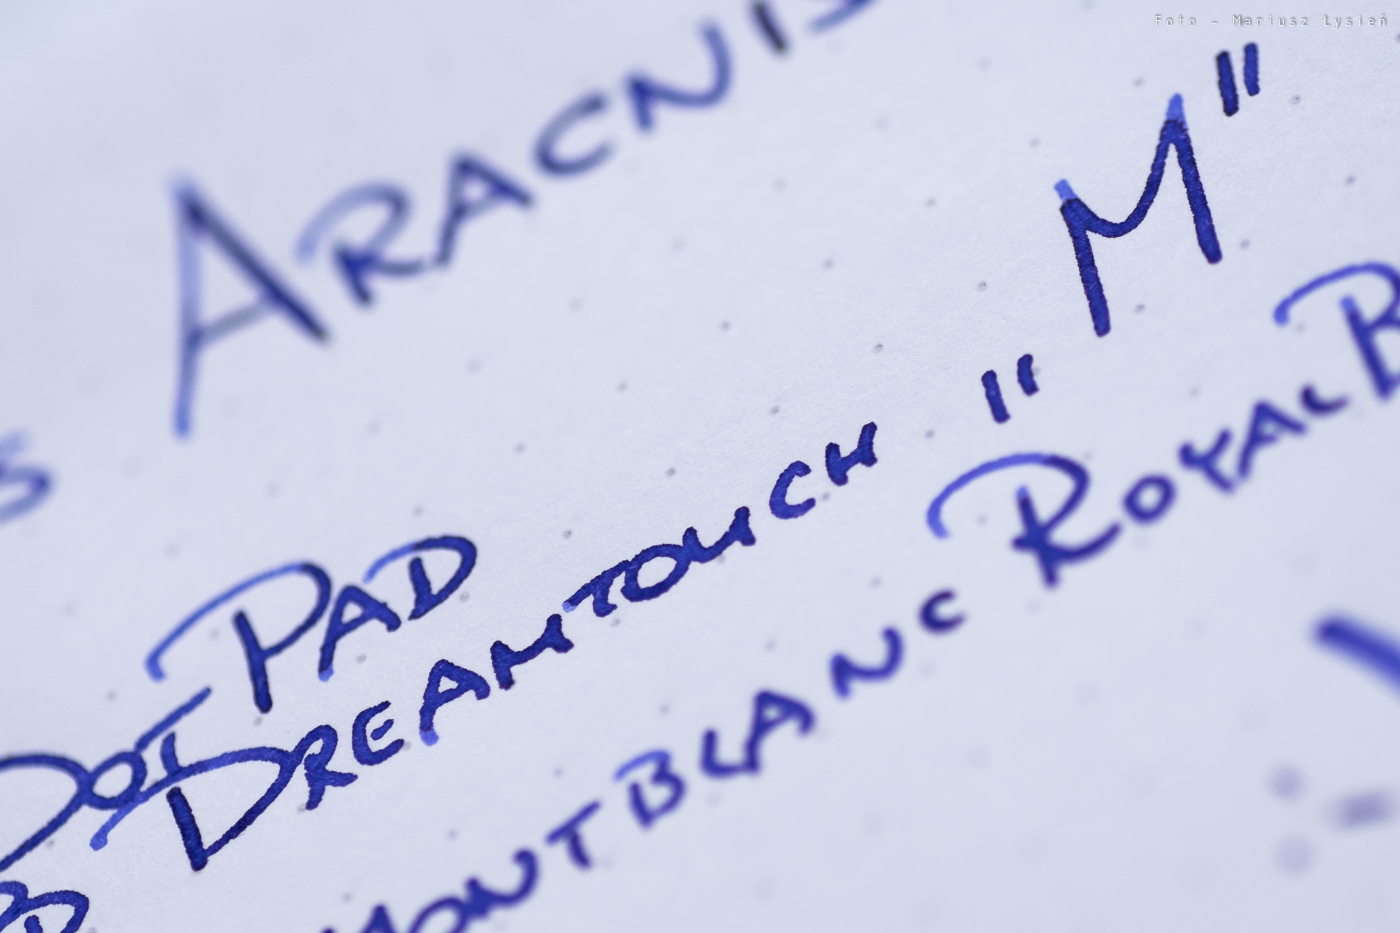 Foto - Mariusz Łysień
ARACNIS
DOT PAD
DREAMTOUCH "M"
MONTBLANC ROYAL B